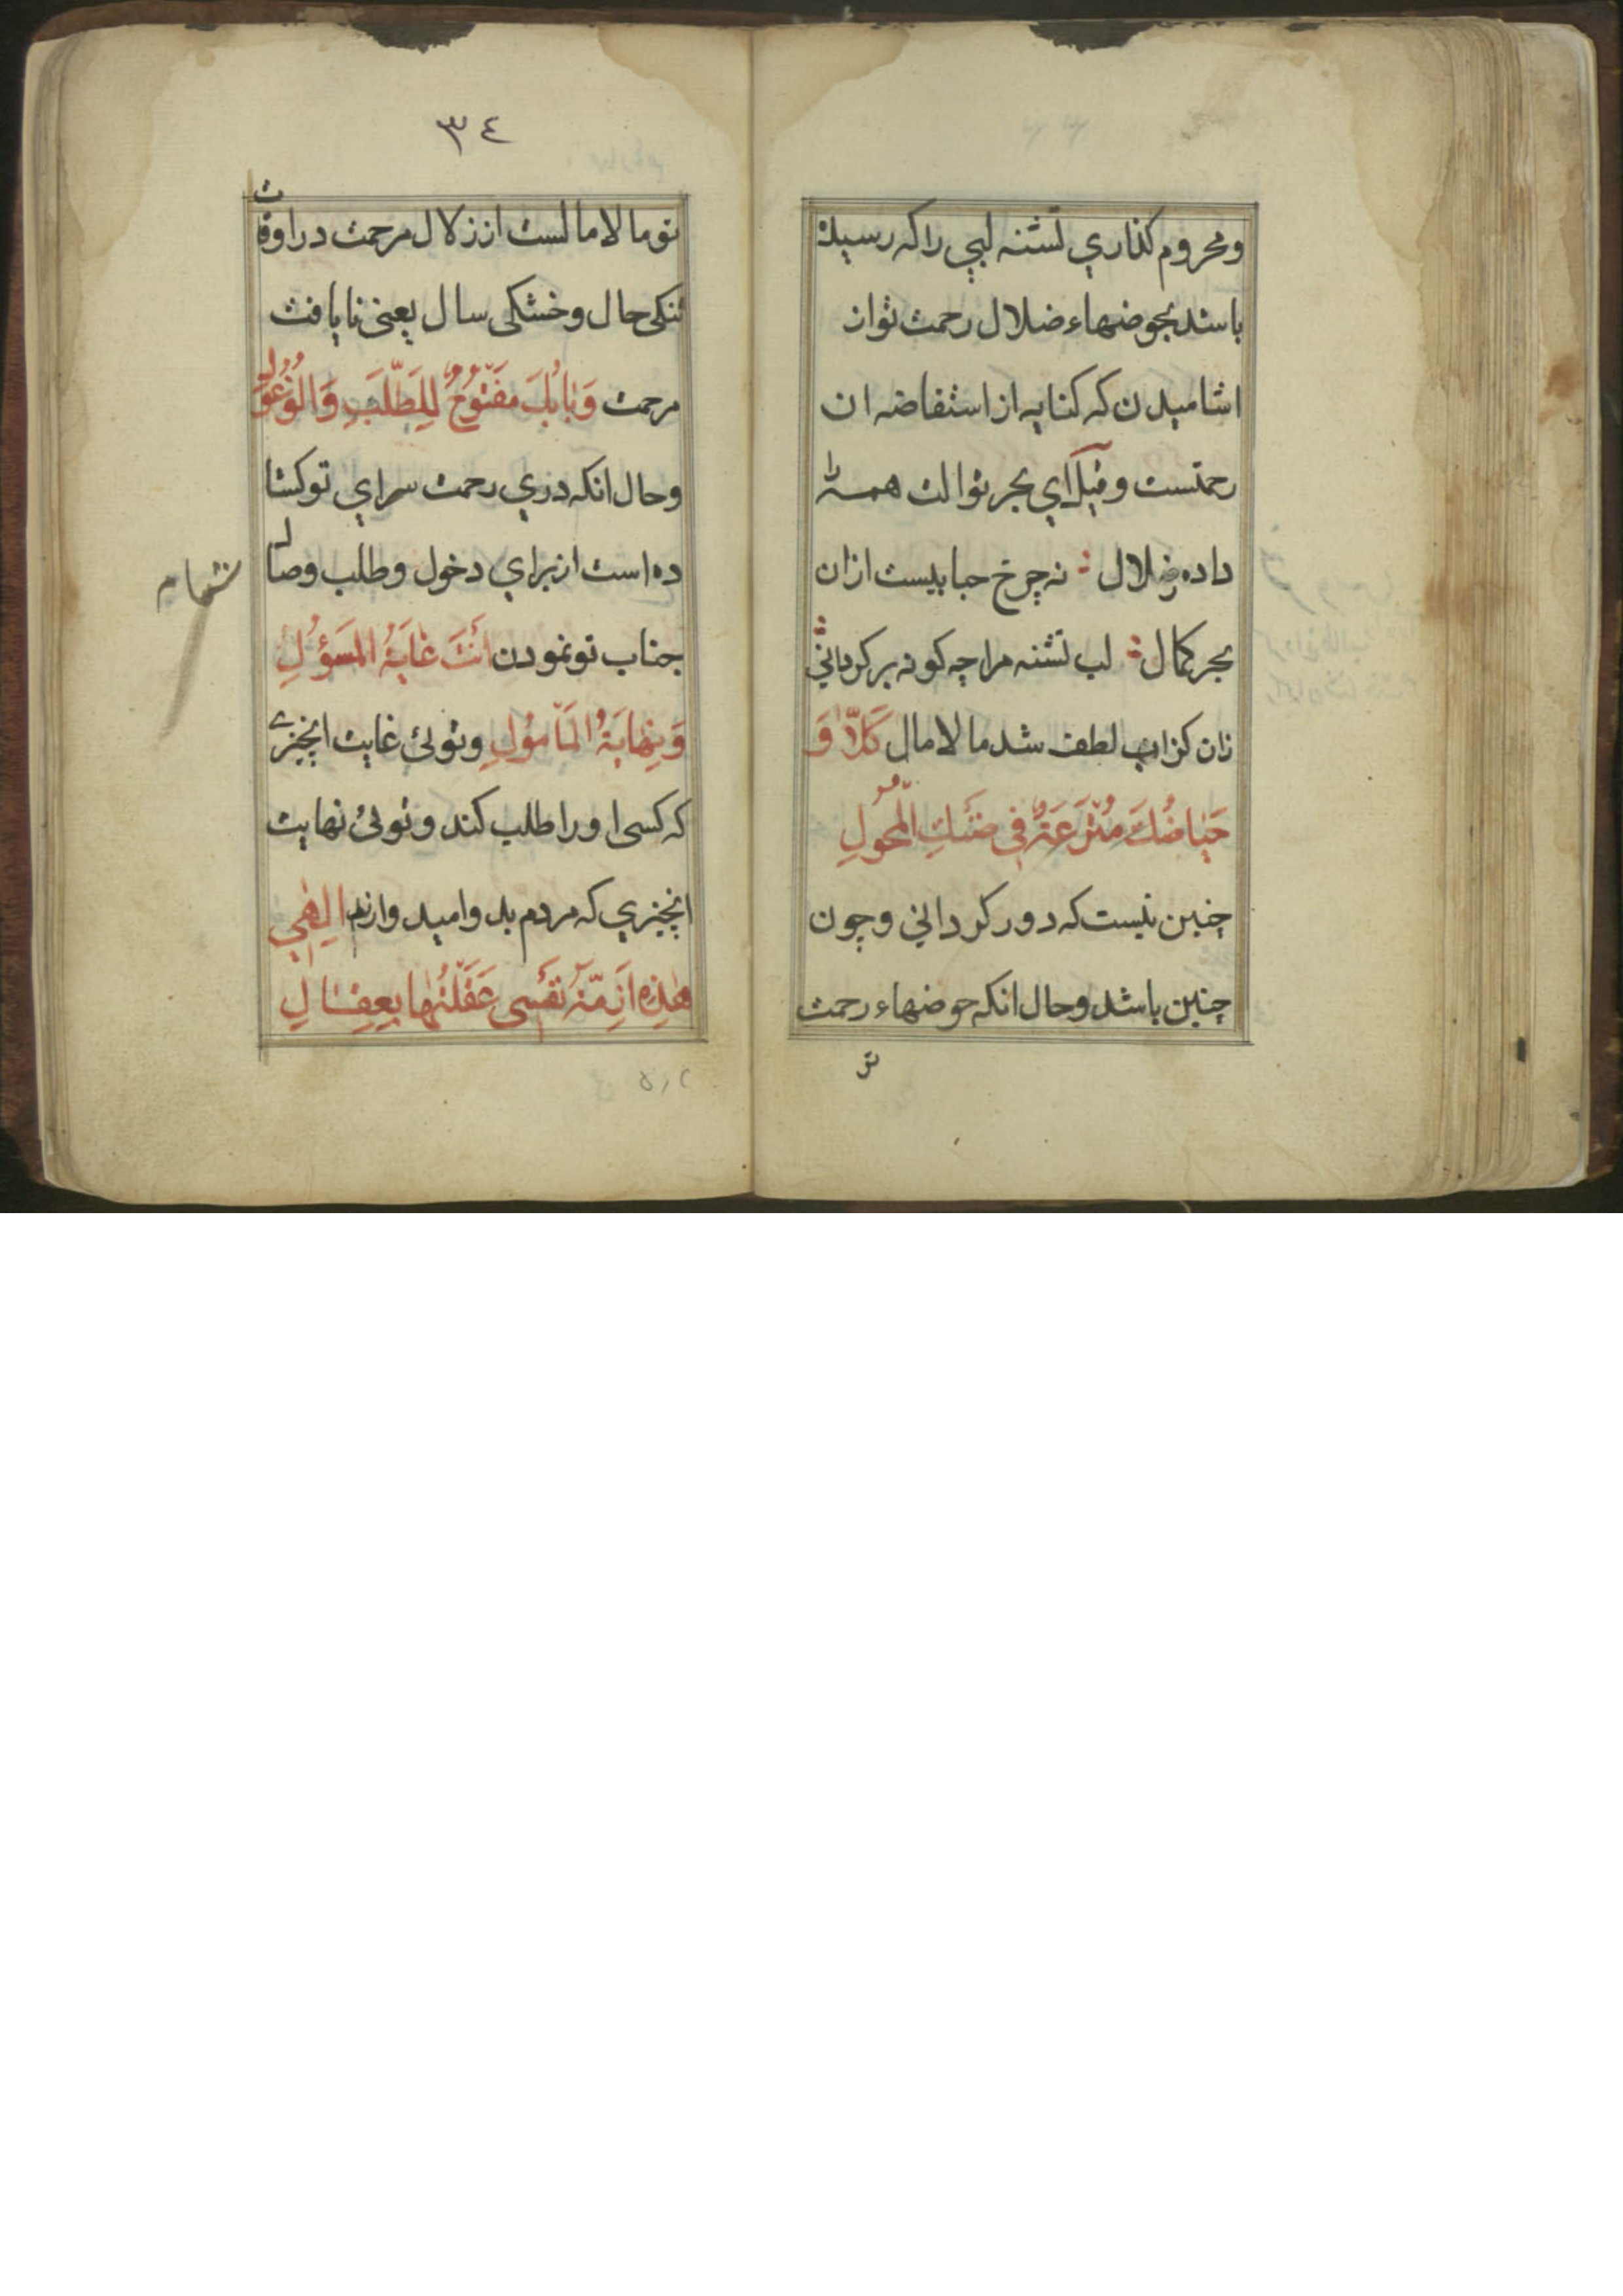 ومحروم كذاري تشنه لبي را كه رسيده
باشد بحوضهاء ضلال رحمت تو از
اشاميدن كه كنايه از استفاضه ان
رحمتست و قيل اي بحر نوالت همه را
داده ضلال نه چرخ حبابيست ازان
بحر كمال لب تشنه مرا چه كونه بر كرداني
زان كزاب لطف شد مالامال كَلّا وَ
حِيَاضُكَ مُتْرَعَةٌ فِي ضَنْكِ الْمُحُولِ
چنين نيست كه دور كرداني و چون
چنين باشد وحال انكه حوضهاء رحمت
تو
٣٤
تو مالامالست از زلال مرحمت در اوقات
تنكي حال وخشكي سال يعني نايافت
مرحمت وَبَابُكَ مَفْتُوحٌ لِلطَّلَبِ وَالْوُغُولِ
وحال انكه دري رحمت سراي تو كشا
ده است از براي دخول وطلب وصال
جناب تو نمودن اَنْتَ غَايَةُ الْمَسْؤُلِ
وَنِهَايَةُ الْمَأمُولِ وتوئي غايت انچيزے
كه كسي او را طلب كند و توئي نهايت
انچيزي كه مردم بد واميد وارند اِلٰهِي
هٰذِهِ اَزِمَّةُ نَفْسِي عَقَلْتُهَا بِعِقَالِ